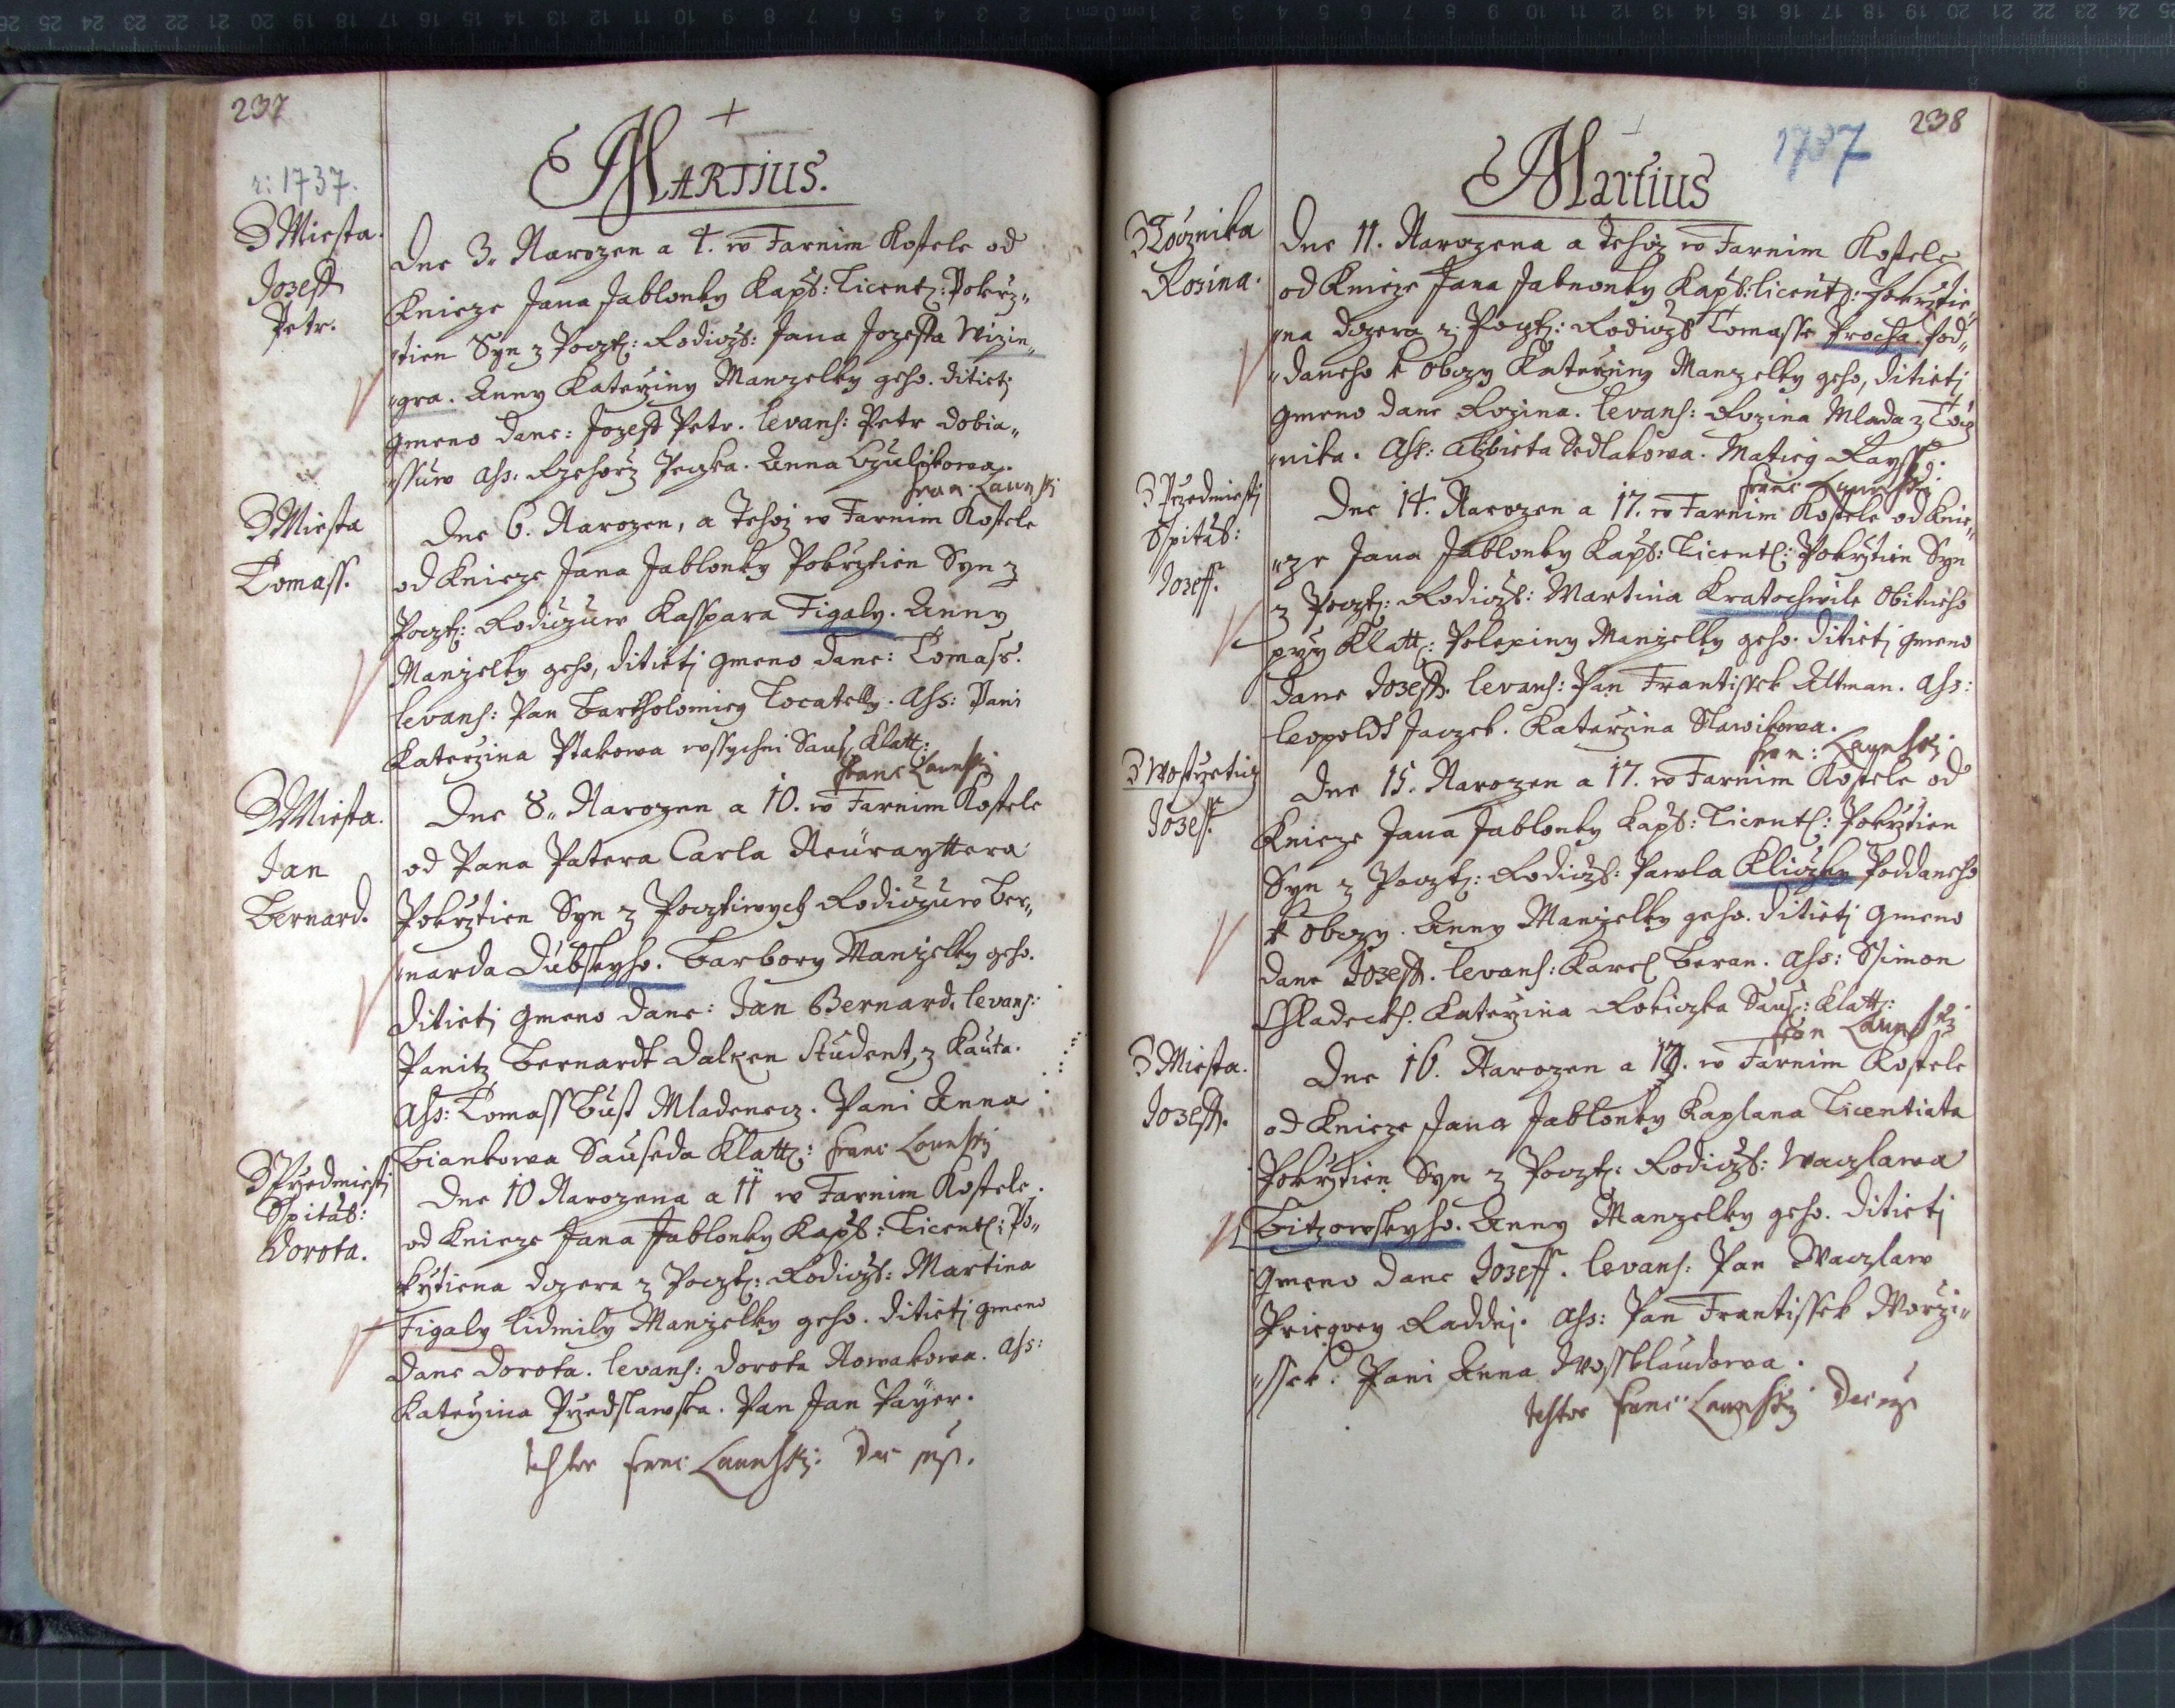 237
r: 1737.
MARTIUS.
Z Miesta.
Jozeff
Petr.
Dne 3. Narozen a 4. w Farnim Kostele od
Knieze Jana Jablonky Kapl: Licent: Pokrz„
„tien Syn z Pocztj: Rodiczl: Jana Jozeffa Wizin„
„gra. Anny Katerziny Manzelky geho. Ditieti
gmeno dane: Jozeff Petr. Levans: Petr Dobia„
„ssuw Ass: Rzehorz Peczka. Anna
Franc Launskj
Z Miesta
Tomass.
Dne 6. Narozen, a Tehoz w Farnim Kostele
od Knieze Jana Jablonky Pokrztien Syn z
Pocztj: Rodiczuw Kasspara Figaly. Anny
Manzelky geho, ditieti gmeno dane: Tomass.
Levans: Pan Bartholomieg Locatelly. Ass: Pani
Katerzina Ptakowa wssychni Saus: Klatt:
Franc Launskj
Z Miesta.
Jan
Bernard.
Dne 8. Narozen a 10. w Farnim Kostele
od Pana Patera Carla Neuraÿttera
Pokrztien Syn z Pocztiwych Rodiczuw Ber„
„narda Dubskyho. Barbory Manzelky geho.
Ditieti gmeno dane: Jan Bernard. Levans:
Panitz Bernardt Dalken Student, z Kauta.
Ass: Tomass Bust Mladenecz. Pani Anna
Biankowa Sauseda Klatt: Franc Launskj
Z Przedmiesti
Sspital:
Dorota.
Dne 10 Narozena a 11 w Farnim Kostele
od Knieze Jana Jablonky Kapl: Licent: Po„
krztiena dczera z Pocztj: Rodiczl: Martina
Figaly Lidmily Manzelky geho. Ditieti gmeno
dane Dorota. Levans: Dorota Nowakowa. Ass:
Katerzina Przedslawska. Pan Jan Paÿer.
Testor Franc Launskj Dec mp.
238
1737
Martius
Z Loucznika
Rosina.
Dne 11. Narozena a Tehoz w Farnim Kostele
od Knieze Jana Jabnonky Kapl: Licent: Pokrztie„
„na dczera z Pocztj: Rodiczl Tomasse Procha. Pod„
„daneho k Obczy Katerziny Manzelky geho, ditieti
gmeno dane Rozina. Levans: Rozina Mlada z Laucz
„nika. Ass: Alzbieta Sedlakowa. Matieg Rayss
Franc Launskj
Z Przedmiesti
Sspital:
Jozeff.
Dne 14. Narozen a 17. w Farnim Kostele od Knie„
„ze Jana Jablonky Kapl: Licent: Pokrztien Syn
z Pocztj: Rodiczl: Martina Kratochwile Obitneho
przy Klatt: Polexiny Manzelky geho. Ditieti gmeno
dane Jozeff. Levans: Pan Frantissek Altman. Ass:
Leopoldt Jaczek. Katerzina Slawikowa.
Fran: Launskj
Z Wostrzeticz
Jozeff.
Dne 15. Narozen a 17. w Farnim Kostele od
Knieze Jana Jablonky Kapl: Licent: Pokrztien
Syn z Pocztj: Rodiczl: Pawla Kliczky Poddaneho
k Obczy. Anny Manzelky geho. Ditieti gmeno
dane Jozeff. Levans: Karel Beran. Ass: Ssimon
Katerzina Rokiczka Saus: Klatt:
Fran Launskj
Z Miesta.
Jozeff.
Dne 16. Narozen a w Farnim Kostele
od Knieze Jana Jablonky Kaplana Licentiata
Pokrztien Syn z Pocztj: Rodiczl: Waczlawa
Bitzowskyho. Anny Manzelky geho. Ditieti
gmeno dane Jozeff. Levans: Pan Waczlaw
Raddnj. Ass: Pan Frantissek Worzi„
„ssek. Pani Anna Wossklaudowa.
Testor Franc Launskj Dec mp